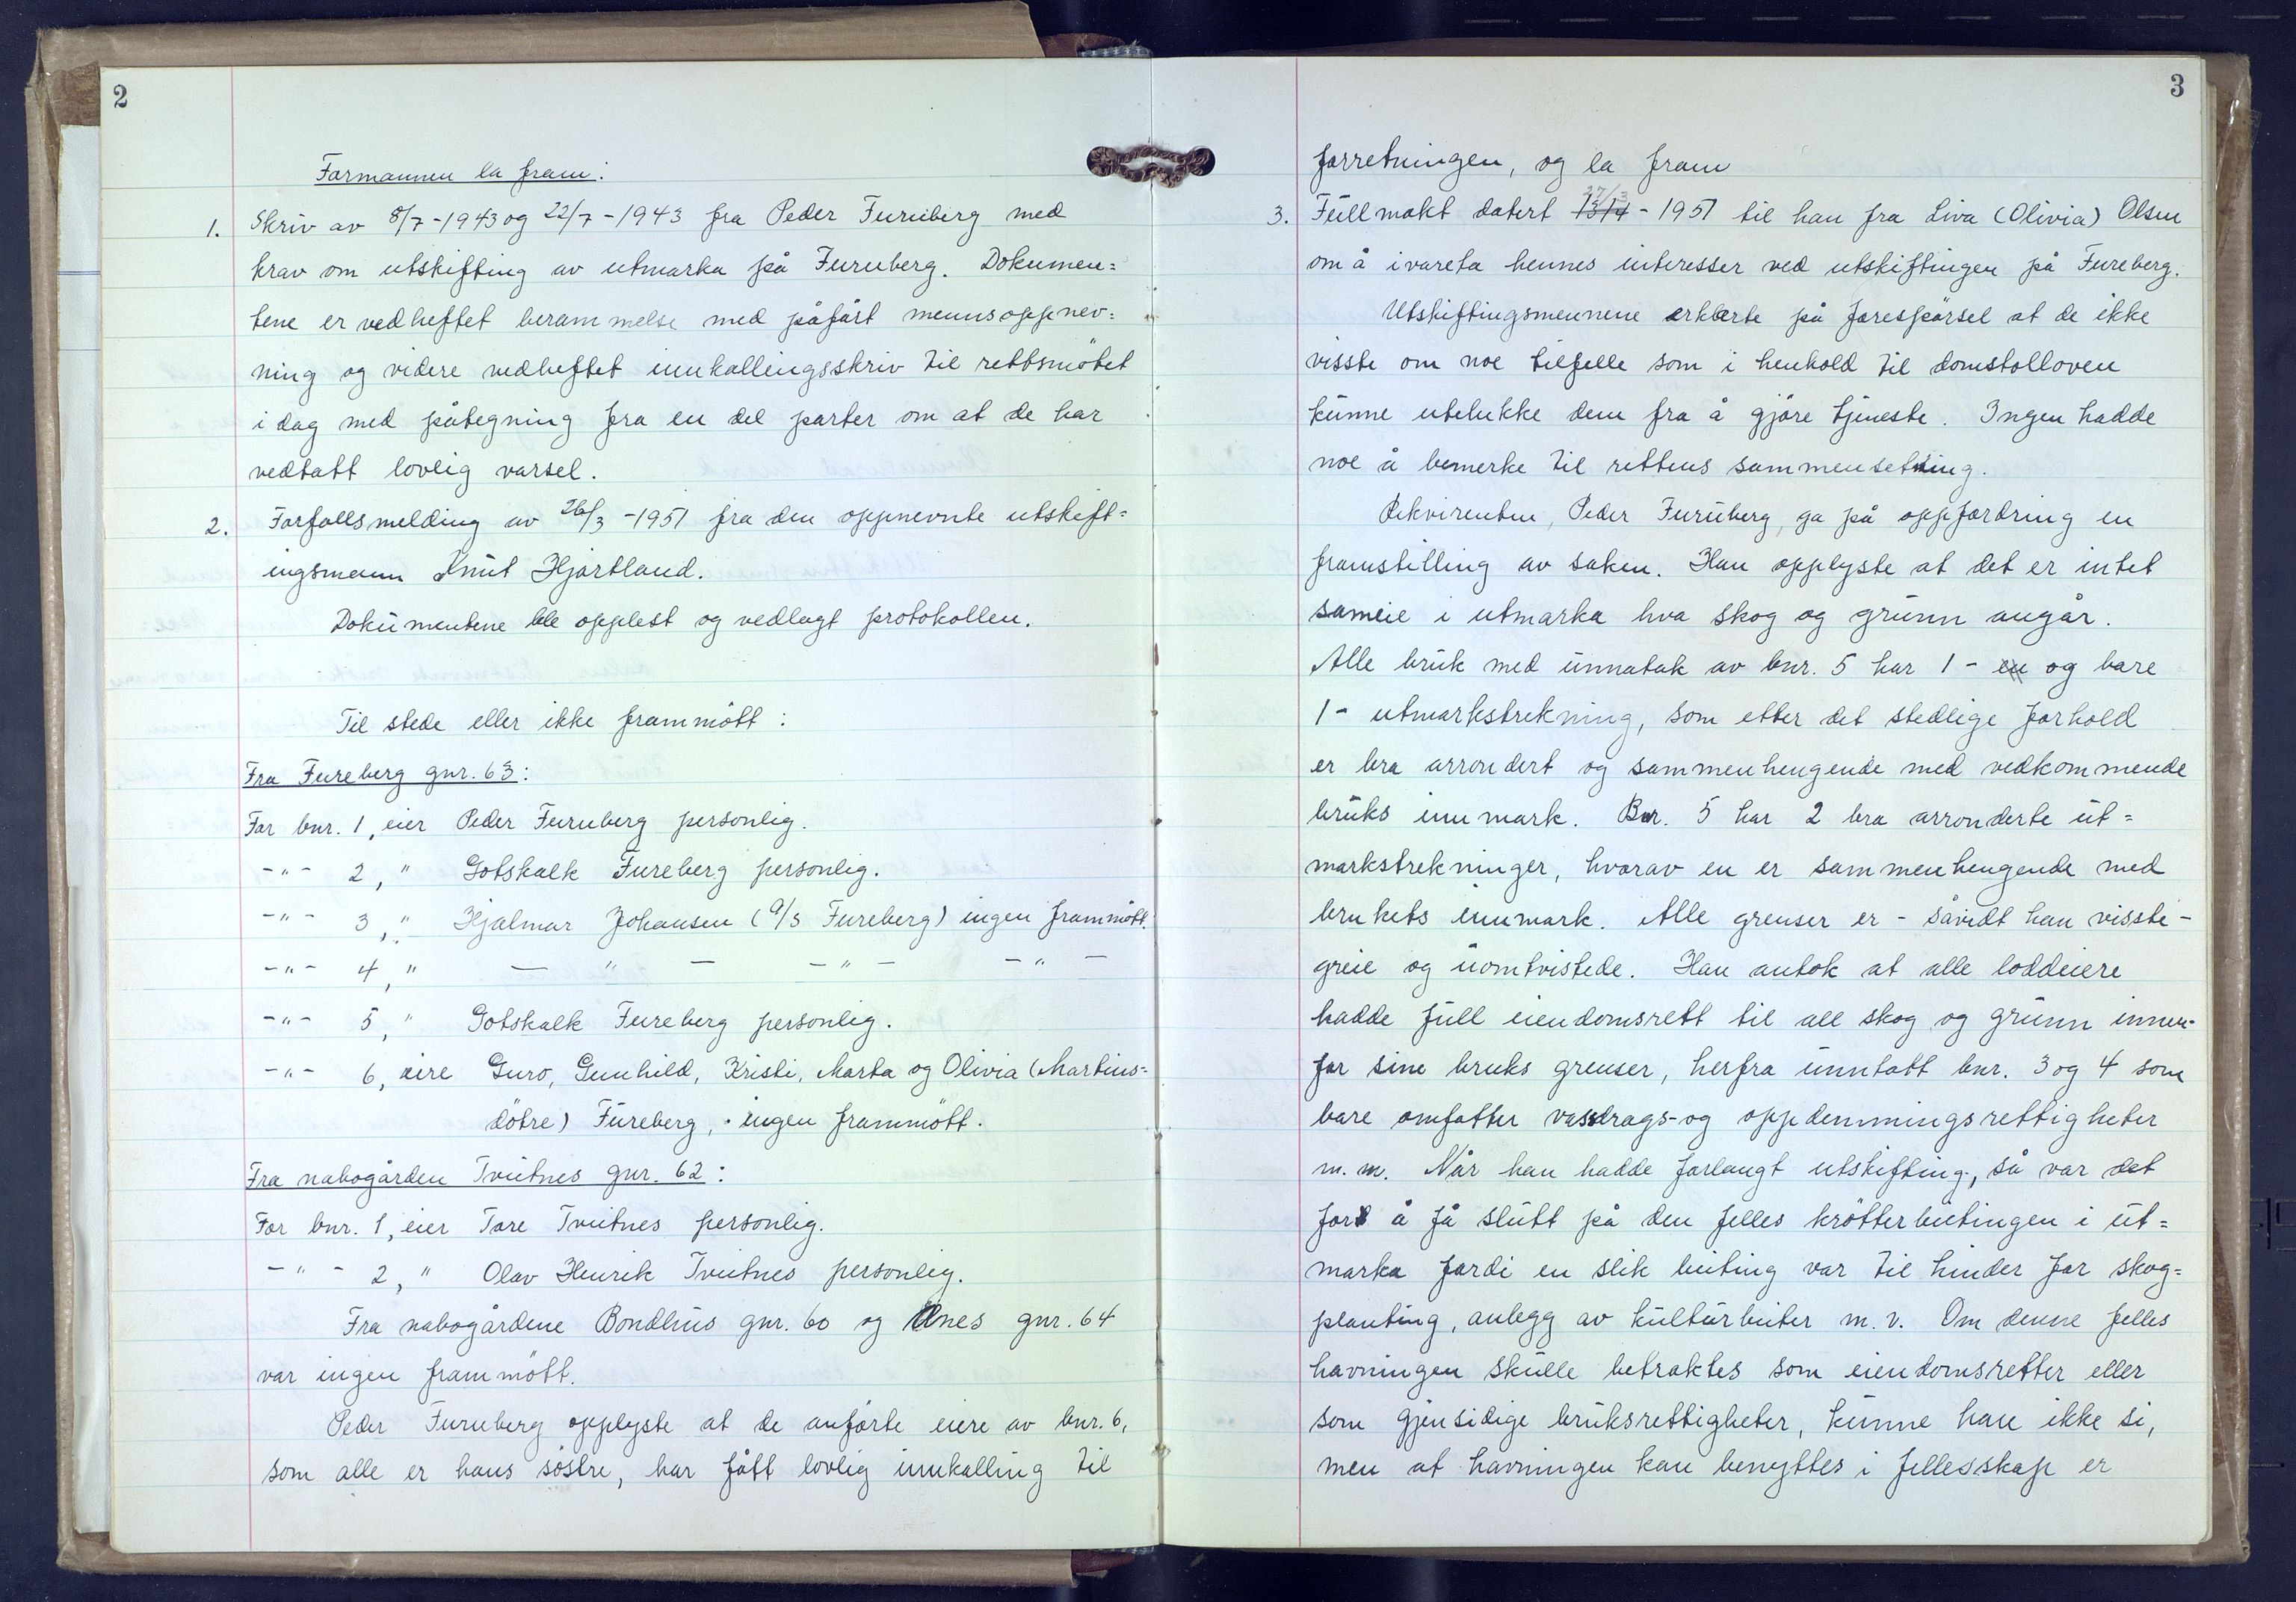 2
Formannen la fram:
1. Skriv av 8/7-1943 og 22/7-1943 fra Peder Furuberg med
krav om utskifting av utmarka på Furuberg. Dokumen=
tene er vedheftet berammelse med påført mennsoppnev=
ning og videre vedheftet innkallingsskriv til rettsmötet
i dag med påtegning fra en del parter om at de har
vedtatt lovlig varsel.
2. Forfallsmelding av 26/3-1951 fra den oppnevnte utskift=
ingsmenn Knut Hjartland.
Dokumentene ble opplest og vedlagt protokollen.
Til stede eller ikke frammött:
Fra Fureberg gnr. 63:
For bnr. 1, eier Peder Furuberg personlig.
-"- 2, " Gotskalk Fureberg personlig.
-"- 3, " Hjalmar Johansen (A/S Fureberg) ingen frammött.
-"- 4, " — " — — " — — " —
-"- 5, " Gotskalk Fureberg personlig.
-"- 6, eire Guro, Gunhild, Kristi, Marta og Olivia (Martins=
dötre) Fureberg, ingen frammött.
Fra nabogården Tveitnes gnr. 62:
For bnr. 1, eier Tore Tveitnes personlig.
-"- 2, " Olav Henrik Tveitnes personlig.
Fra nabogårdene Bondhus gnr. 60 og Ænes gnr. 64
var ingen frammött.
Peder Furuberg opplyste at de anförte eiere av bnr. 6,
som alle er hans söstre, har fått lovlig innkalling til
3
forretningen, og la fram
27/3
3. Fullmakt datert 13/4-1951 til han fra Liva (Olivia) Olsen
om å ivareta hennes interesser ved utskiftingen på Fureberg.
Utskiftingsmennene erklærte på forespörsel at de ikke
visste om noe tilfelle som i henhold til domstolloven
kunne utelukke dem fra å gjöre tjeneste. Ingen hadde
noe å bemerke til rettens sammensetning.
Rekvirenten, Peder Furuberg, ga på oppfordring en
framstilling av saken. Han opplyste at det er intet
sameie i utmarka hva skog og grunn angår.
Alle bruk med unnatak av bnr. 5 har 1 - en og bare
1 - utmarkstrekning, som etter det stedlige forhold
er bra arrondert og sammenhengende med vedkommende
bruks innmark. Bnr. 5 har 2 bra arronderte ut=
markstrekninger, hvorav en er sammenhengende med
brukets innmark. Alle grenser er - såvidt han visste -
greie og uomtvistede. Han antok at alle loddeiere
hadde full eiendomsrett til all skog og grunn innen-
for sine bruks grenser, herfra unntatt bnr. 3 og 4 som
bare omfatter vassdrags- og oppdemmingsrettigheter
m. m. Når han hadde forlangt utskifting, så var det
for å få slutt på den felles krötterbeitingen i ut=
marka fordi en slik beiting var til hinder for skog=
planting, anlegg av kulturbeiter m. v. Om denne felles
havningen skulle betraktes som eiendomsretter eller
som gjensidige bruksrettigheter, kunne han ikke si,
men at havningen kan benyttes i fellesskap er